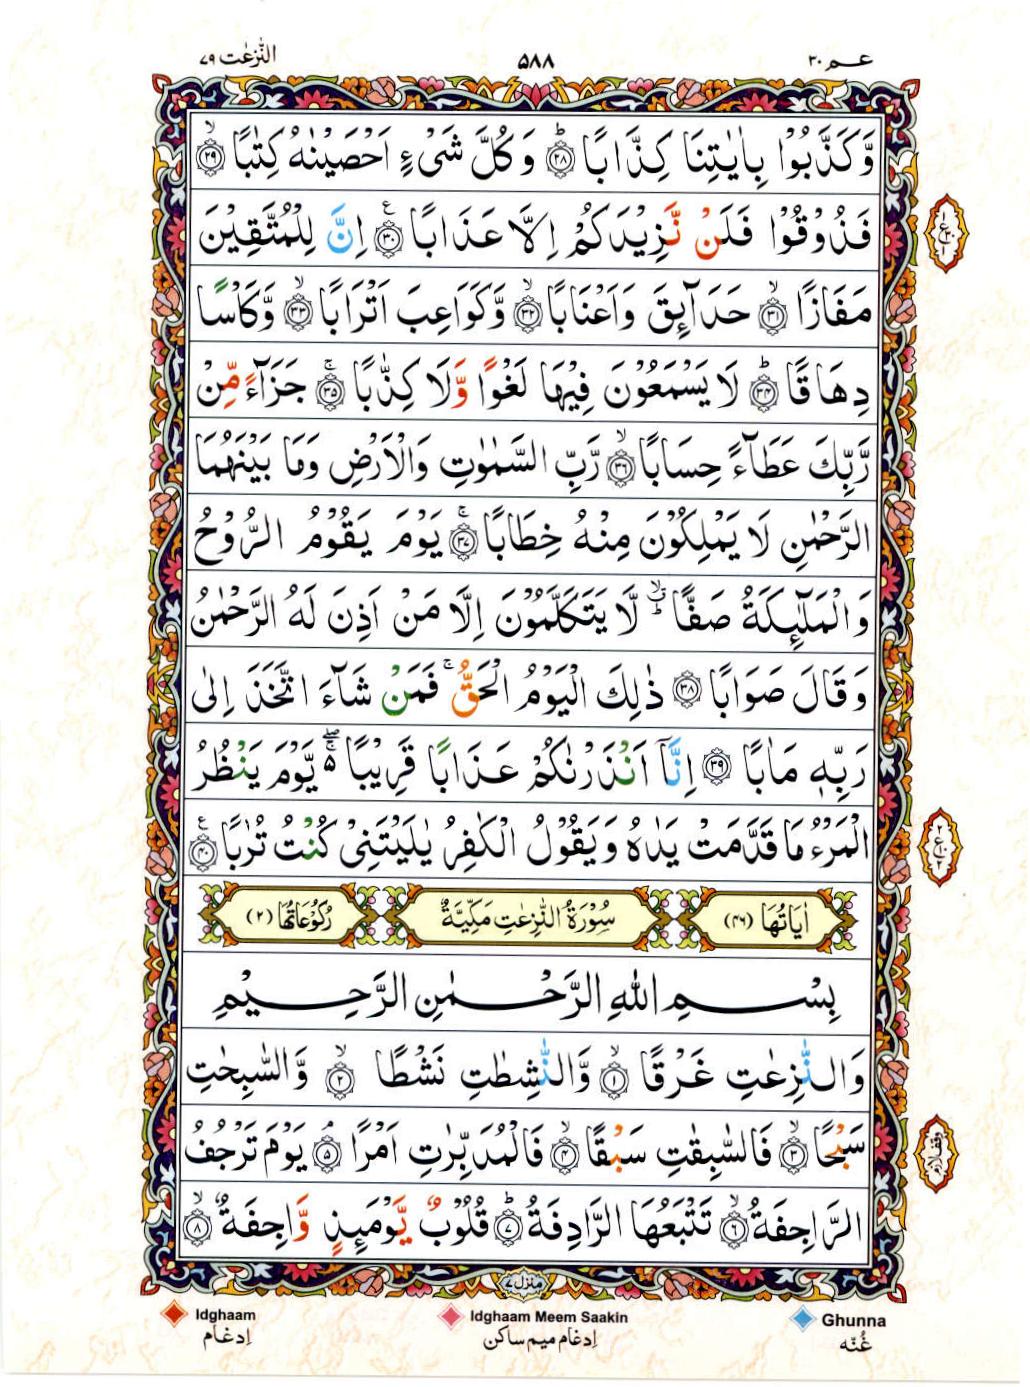 النّٰزعٰت ۷۹
۵۸۸
عـم ۳۰
وَّكَذَّبُوْا بِاٰيٰتِنَا كِذَّابًا ؕ‏﴿۲۸﴾ وَكُلَّ شَىْءٍ اَحْصَيْنٰهُ كِتٰبًا ۙ‏﴿۲۹﴾
فَذُوْقُوْا فَلَنْ نَّزِيْدَكُمْ اِلَّا عَذَابًا ‏﴿۳۰﴾ ع اِنَّ لِلْمُتَّقِيْنَ
مَفَازًا ۙ‏﴿۳۱﴾ حَدَآئِقَ وَاَعْنَابًا ۙ‏﴿۳۲﴾ وَّكَوَاعِبَ اَتْرَابًا ۙ‏﴿۳۳﴾ وَّكَاْسًا
دِهَاقًا ؕ‏﴿۳۴﴾ لَا يَسْمَعُوْنَ فِيْهَا لَغْوًا وَّلَا كِذّٰبًا ۚ‏﴿۳۵﴾ جَزَآءً مِّنْ
رَّبِّكَ عَطَآءً حِسَابًا ۙ‏﴿۳۶﴾ رَّبِّ السَّمٰوٰتِ وَالْاَرْضِ وَمَا بَيْنَهُمَا
الرَّحْمٰنِ لَا يَمْلِكُوْنَ مِنْهُ خِطَابًا ۚ‏﴿۳۷﴾ يَوْمَ يَقُوْمُ الرُّوْحُ
وَالْمَلٰٓئِكَةُ صَفًّا ؕۙ لَّا يَتَكَلَّمُوْنَ اِلَّا مَنْ اَذِنَ لَهُ الرَّحْمٰنُ
وَقَالَ صَوَابًا ‏﴿۳۸﴾ ذٰلِكَ الْيَوْمُ الْحَقُّ ۚ فَمَنْ شَآءَ اتَّخَذَ اِلٰى
رَبِّهٖ مَاٰبًا ‏﴿۳۹﴾ اِنَّاۤ اَنْذَرْنٰكُمْ عَذَابًا قَرِيْبًا ۖۚ۬ يَّوْمَ يَنْظُرُ
الْمَرْءُ مَا قَدَّمَتْ يَدٰهُ وَيَقُوْلُ الْكٰفِرُ يٰلَيْتَنِىْ كُنْتُ تُرٰبًا ‏﴿۴۰﴾ ع
اٰيَاتُهَا (۴۶) سُوْرَةُ النّٰزِعٰتِ مَكِّيَّةٌ رُكُوْعَاتُهَا (۲)
بِسْمِ اللّٰهِ الرَّحْمٰنِ الرَّحِيْمِ
وَالنّٰزِعٰتِ غَرْقًا ۙ‏﴿۱﴾ وَّالنّٰشِطٰتِ نَشْطًا ۙ‏﴿۲﴾ وَّالسّٰبِحٰتِ
سَبْحًا ۙ‏﴿۳﴾ فَالسّٰبِقٰتِ سَبْقًا ۙ‏﴿۴﴾ فَالْمُدَبِّرٰتِ اَمْرًا ۘ‏﴿۵﴾ يَوْمَ تَرْجُفُ
الرَّاجِفَةُ ۙ‏﴿۶﴾ تَتْبَعُهَا الرَّادِفَةُ ؕ‏﴿۷﴾ قُلُوْبٌ يَّوْمَئِذٍ وَّاجِفَةٌ ۙ‏﴿۸﴾
وقف لازم
منزل ۷
Idghaam
Idghaam Meem Saakin
Ghunna
اِدغام
اِدغام میم ساکن
غُنّہ